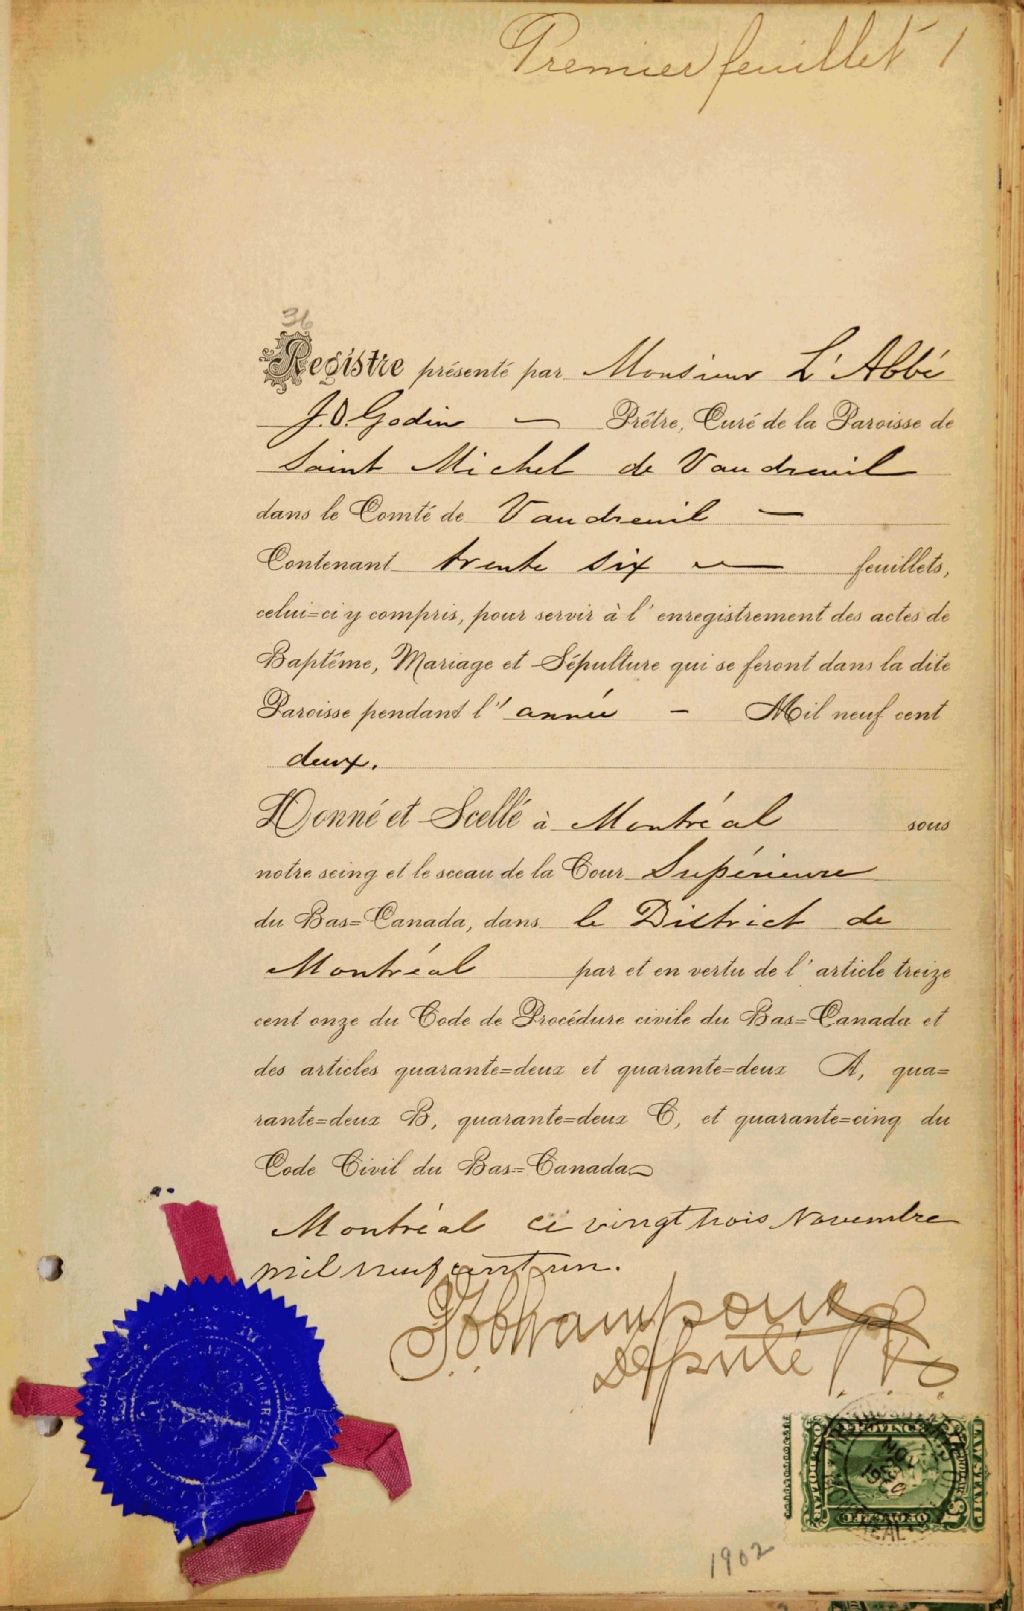 Premier feuillet 1
36
Registre présenté par Monsieur L'Abbé
J.O. Godin — Prêtre, Curé de la Paroisse de
Saint Michel de Vaudreuil
dans le Comté de Vaudreuil —
Contenant trente six — feuillets,
celui=ci y compris, pour servir à l'enregistrement des actes de
Baptême, Mariage et Sépulture qui se feront dans la dite
Paroisse pendant l'année — Mil neuf cent
deux.
Donné et Scellé à Montréal sous
notre seing et le sceau de la Cour Supérieure
du Bas=Canada, dans le District de
Montréal par et en vertu de l'article treize
cent onze du Code de Procédure civile du Bas=Canada et
des articles quarante=deux et quarante=deux A, qua=
rante=deux B, quarante=deux C, et quarante=cinq du
Code Civil du Bas=Canada
Montréal ce vingt trois Novembre
mil neuf cent un.
Député
LAW STAMP
1902